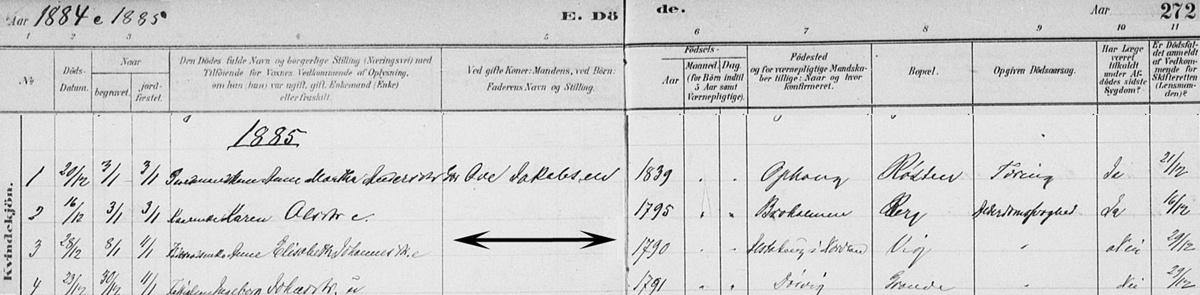 Aar 1884 e 1885 E. Dö de. Aar 272
1 2 3 4 5 6 7 8 9 10 11
No Döds-Datum. Naar begravet. jord-fæstet. Den Dödes fulde Navn og borgerlige Stilling (Næringsvei) med Tilföiende for Voxnes Vedkommende af Oplysning, om han (hun) var ugift, gift, Enkemand (Enke) eller fraskilt. Ved gifte Koner: Mandens, ved Börn: Faderens Navn og Stilling. Födsels- Aar Maaned. Dag. (for Börn indtil 5 Aar samt Værnepligtige). Födested og for værnepligtige Mandskaber tillige: Naar og hvor konfirmeret. Bopæl. Opgiven Dödsaarsag. Har Læge været tilkaldt under Afdödes sidste Sygdom? Er Dödsfaldet anmeldt af Vedkommende for Skifteretten (Lensmanden)?
1885
Kvindekjön.
1 20/12 3/1 3/1 Anne Martha Ove Jakobsen 1839 " " Ophaug Røsten Tæring Ja 21/12
2 16/12 3/1 3/1 Karen Olsdtr e. 1795 " " Bjoholmen Berg Alderdomssvaghed Ja 16/12
3 28/12 8/1 4/1 Anne Elisabeth Johannesdtr. e 1790 " " Vig " Nei 29/12
4 23/12 30/12 4/1 Ingeborg u 1791 " " Dørvig Grande " Nei 29/12